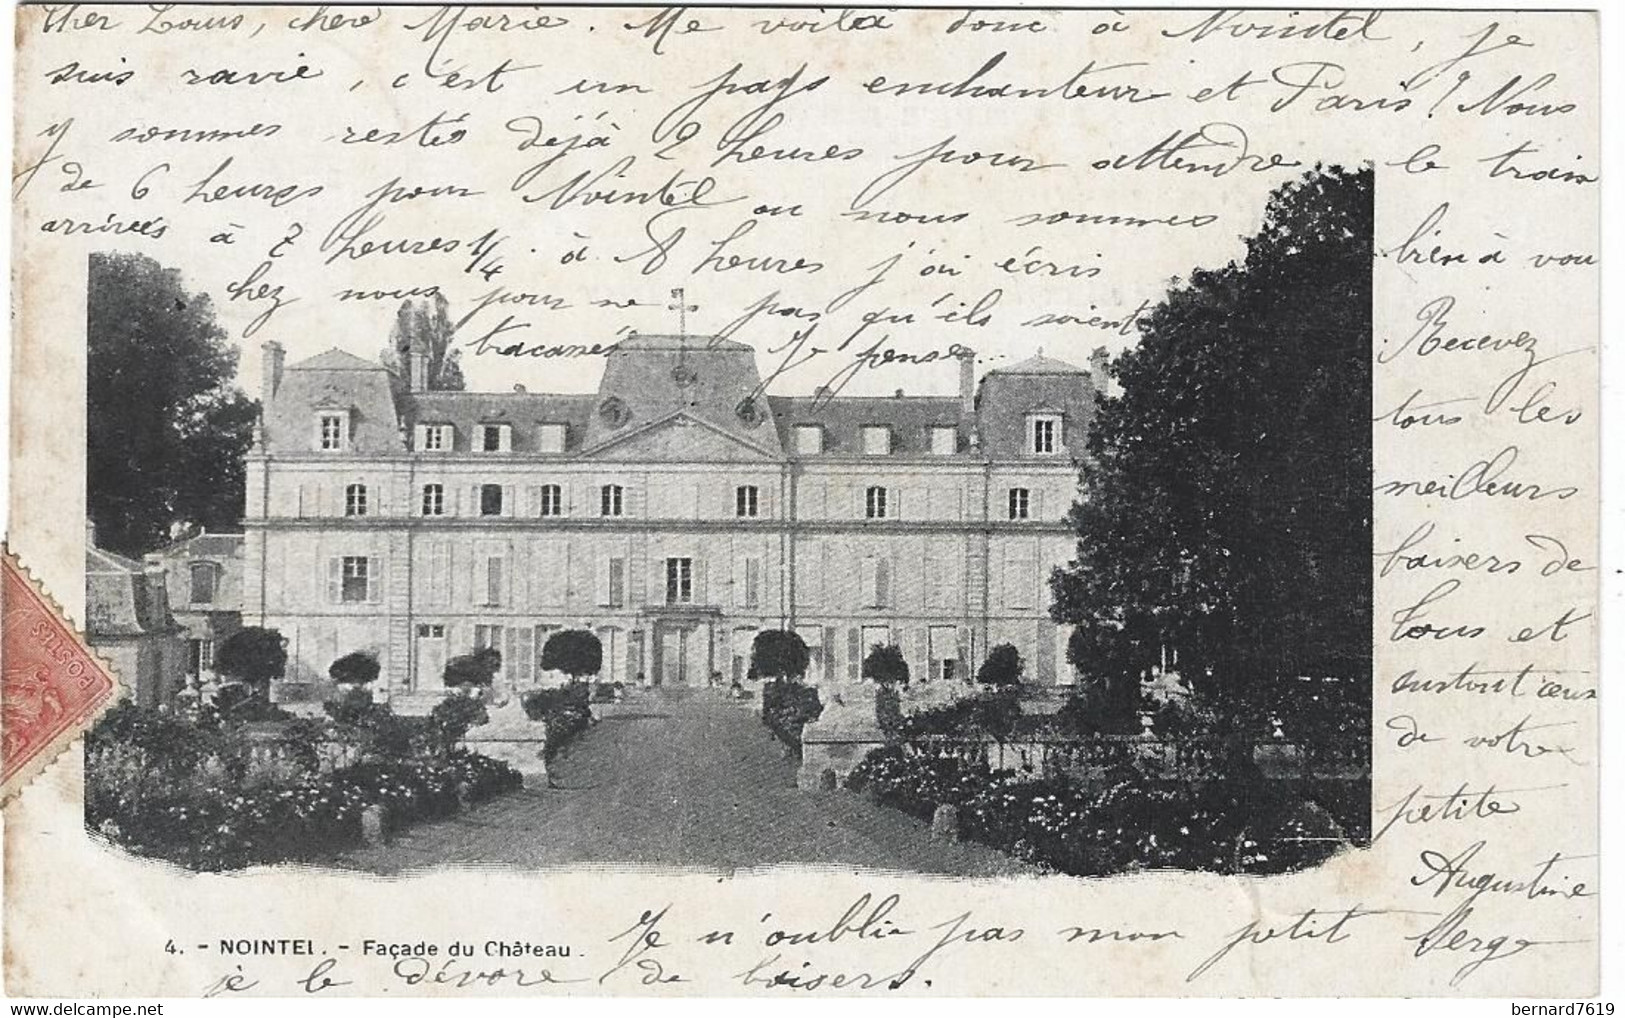 Cher Louis, chère Marie. Me voilà donc à Nointel, je
suis ravie, c'est un pays enchanteur et Paris! Nous
y sommes restés déjà 2 heures pour attendre le train
de 6 heures pour Nointel ou nous sommes
arrivées à 7 heures 1/4. à 8 heures j'ai écris
chez nous pour ne pas qu'ils soient
tracassés. Je pense
bien à vou
Recevez
tous les
meilleurs
baisers de
tous et
surtout ceux
de votre
petite
Augustine
4. - NOINTEL. - Façade du Château.
Je n'oublie pas mon petit Serge
je le dévore de baisers.
POSTES
bernard7619